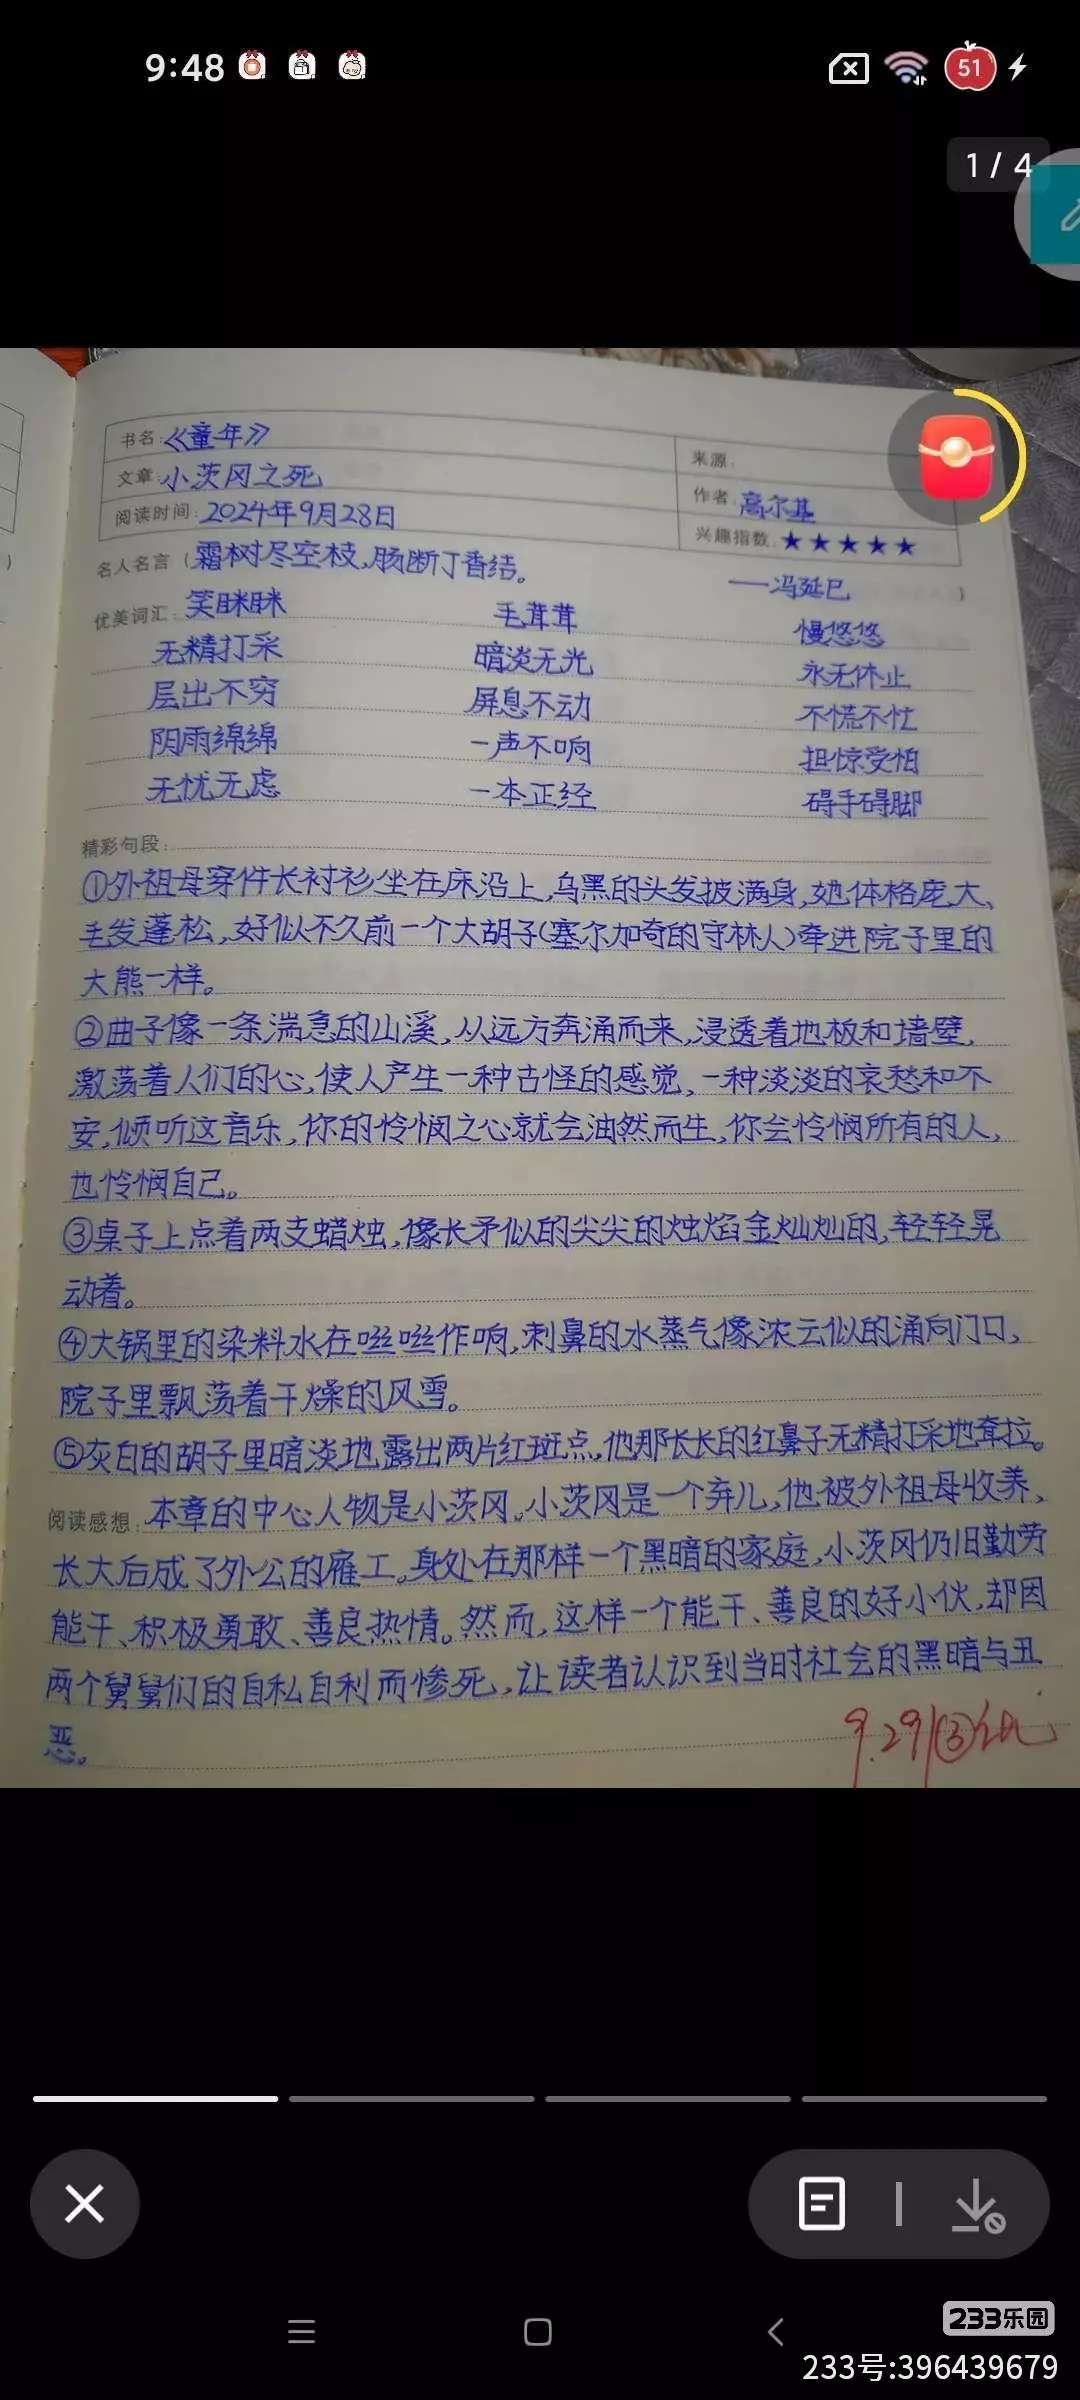 9:48
51
1 / 4
书名:《童年》
来源:
文章:小茨冈之死
作者:高尔基
阅读时间:2024年9月28日
兴趣指数:★★★★★
名人名言(霜树尽空枝,肠断丁香结。
——冯延巳)
优美词汇:笑眯眯 毛茸茸 慢悠悠
无精打采 暗淡无光 永无休止
层出不穷 屏息不动 不慌不忙
阴雨绵绵 一声不响 担惊受怕
无忧无虑 一本正经 碍手碍脚
精彩句段:
①外祖母穿件长衬衫坐在床沿上,乌黑的头发披满身,她体格庞大、
毛发蓬松,好似不久前一个大胡子(塞尔加奇的守林人)牵进院子里的
大熊一样。
②曲子像一条湍急的山溪,从远方奔涌而来,浸透着地板和墙壁,
激荡着人们的心,使人产生一种古怪的感觉,一种淡淡的哀愁和不
安,倾听这音乐,你的怜悯之心就会油然而生,你会怜悯所有的人,
也怜悯自己。
③桌子上点着两支蜡烛,像长矛似的尖尖的烛焰金灿灿的,轻轻晃
动着。
④大锅里的染料水在咝咝作响,刺鼻的水蒸气像浓云似的涌向门口,
院子里飘荡着干燥的风雪。
⑤灰白的胡子里暗淡地露出两片红斑点,他那长长的红鼻子无精打采地耷拉。
阅读感想:本章的中心人物是小茨冈。小茨冈是一个弃儿,他被外祖母收养,
长大后成了外公的雇工。身处在那样一个黑暗的家庭,小茨冈仍旧勤劳
能干、积极勇敢、善良热情。然而,这样一个能干、善良的好小伙,却因
两个舅舅们的自私自利而惨死,让读者认识到当时社会的黑暗与丑
恶。
9.29
233乐园
233号:396439679